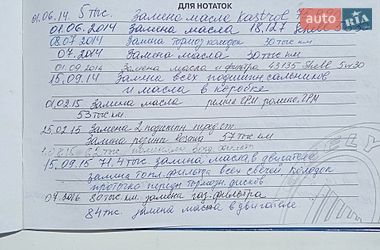 ДЛЯ НОТАТОК
AUTO RIA
01.06.14 5 тыс. Замена масла kastrol
01.06.2014 Замина масла 18,127 Shell
08.07.2014 Заміна тормоз колодок 30 тыс км
07.2014 Замина масла 30 тыс км
01.09.2014 Замена масла и фильтра 43135 Shell 5w30
15.09.14 Замена всех подшипсальников
и масла в коробке
01.02.15 Замена масла ролика ГРМ
53 тыс км
25.02.15 Замена 2 перед ст
Замена ремня 57 тыс км
62 тыс
15.09.15 71,4 тыс замена масла в двигателе
замена топл. фильтра всех свечей колодок
проточка передн тормозн дисков
04.2016 80 тыс км замена газ. фильтра
84 тыс замена масла в двигателе